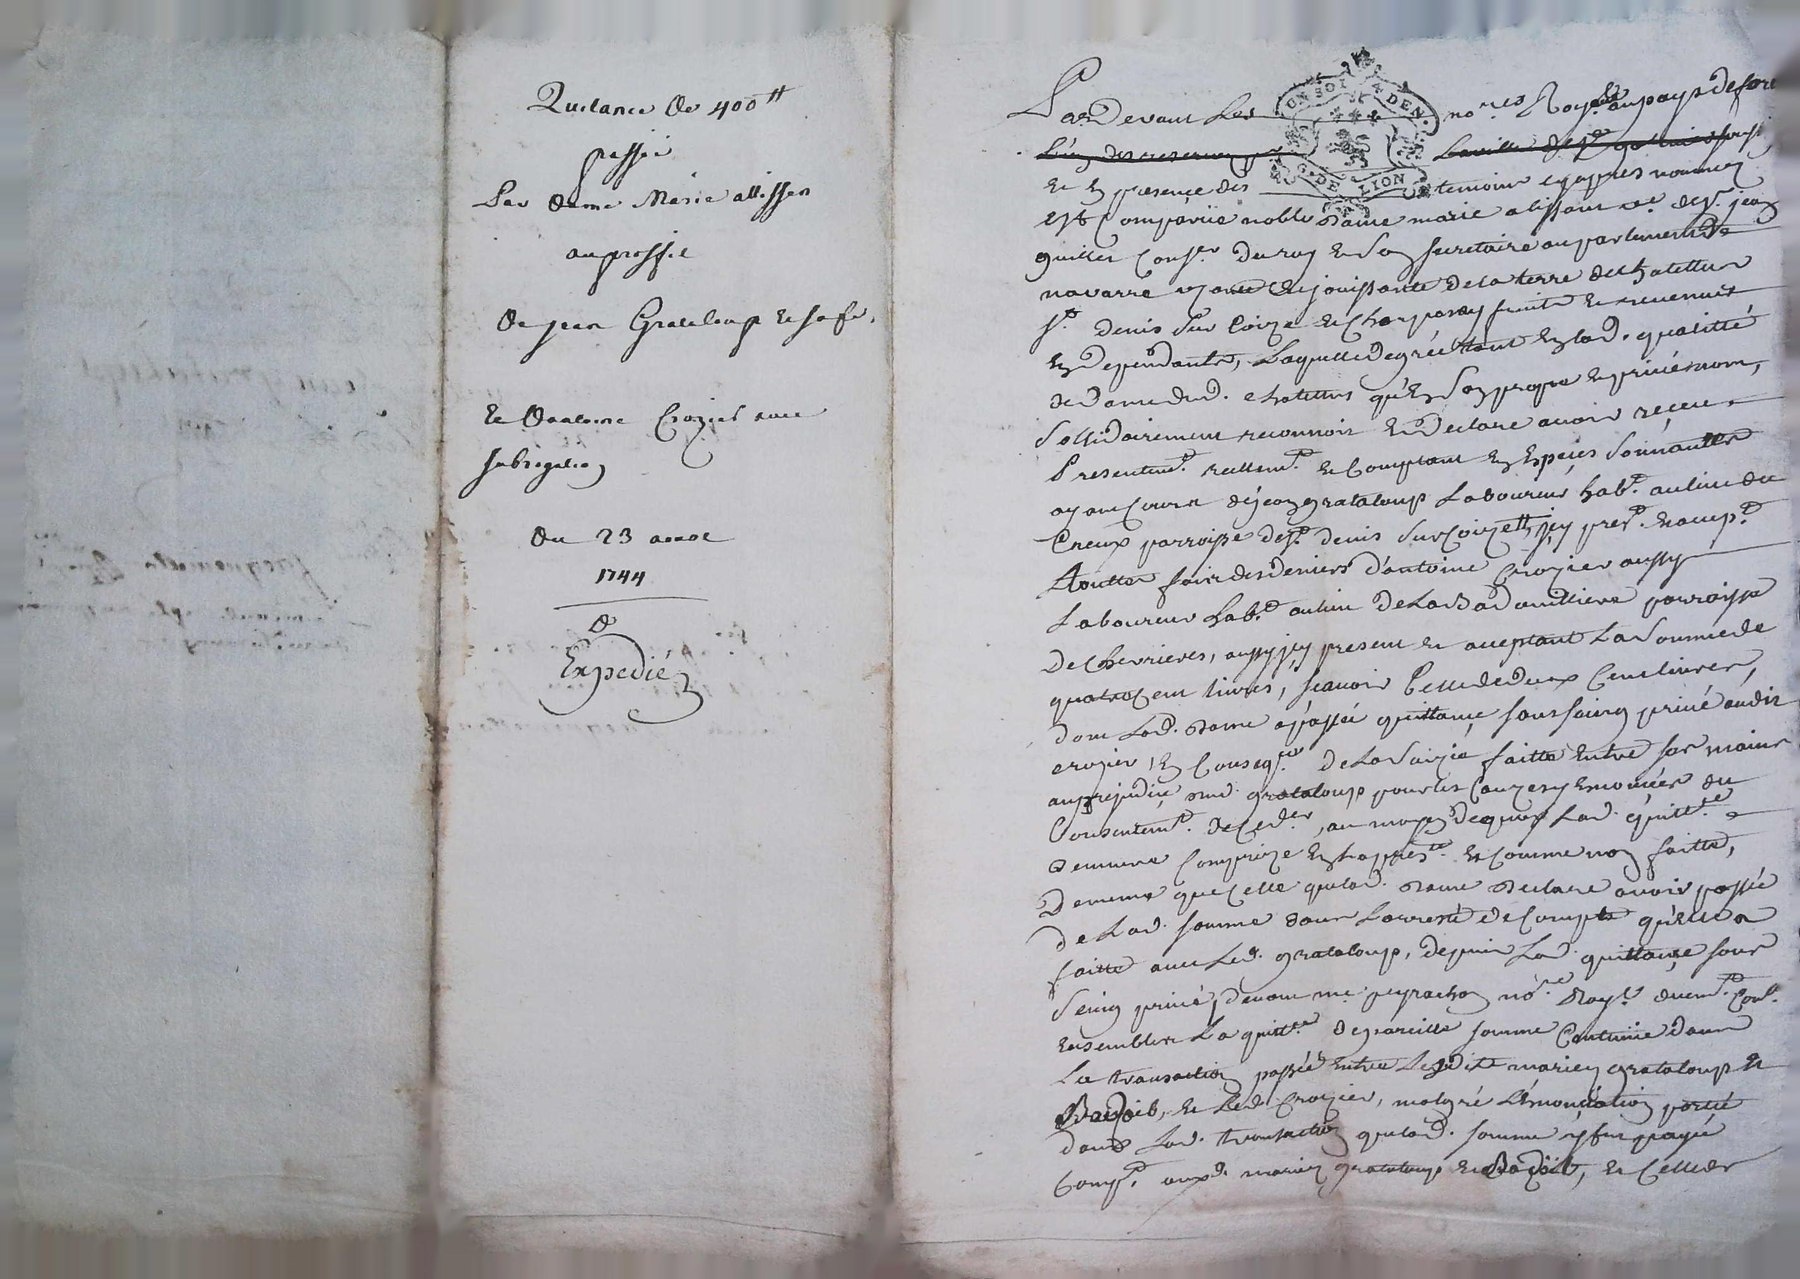 Quitance de 400tt
passée
Par dame Marie allissan
au proffit
de jean Grataloup et sa fe.
et dantoine Crozier avec
subrogation
du 23 aoust
1744
Expedié
Pardevant Les no.res Royaux au pays de forest
UN SOL 4 DEN.
G. DE LION
et en presence des temoins cy appres nommez
est Comparüe noble dame marie alissant ve. de sr. jean
guillet Conser. du roy et son secretaire au parlement de
navarre ayant et jouissante de la terre de chatellus
st. denis sur Coize et fruits et revenus
en dependants, Laquelle degrée tant en lad. qualitté
de dame dud. chatellus qu'en son propre et privé nom,
sollidairement reconnoit et declare avoir reçeu
Presentemt. reellemt. et Comptant en Espeçes sonnantes
ayant Cours de jean grataloup Laboureur habt. au lieu du
Creux parroisse de st. denis sur Coize icy prest. et acept.
toutte fois des deniers d'antoine Crozier aussy
Laboureur habt. au lieu de La Badouilliere parroisse
de Chevrieres, aussy icy present et acceptant La somme de
quatre Cent livres, sçavoir Celle de deux Cent livres,
dont Lad. dame a passée quittançe sous seing privé audit
crozier, en Conseqce. de La saizie faitte Entre ses mains
au prejudiçe dud. grataloup pour les Cauzes y Enoncées du
Consentemt. de Ced.er, au moyen de quoy Lad. quittce.
demeure Comprize En la presste. et Comme non faitte,
de meme que Celle que lad. dame declare avoir passée
de Lad. somme dans Larresté de Compte qu'elle a
faitte avec Led. grataloup, depuis Lad. quittance sous
seing privé, devant me. peyrachon no.re Royl.
ensembles La quittce. de pareille somme Contenüe dans
La transaction passée Entre Lesdits mariez grataloup et
et Led. Crozier, malgré L'énonçiation portée
dans Lad. transaction que lad. somme y fut payée
Compt. auxd. mariez grataloup et et Celle de